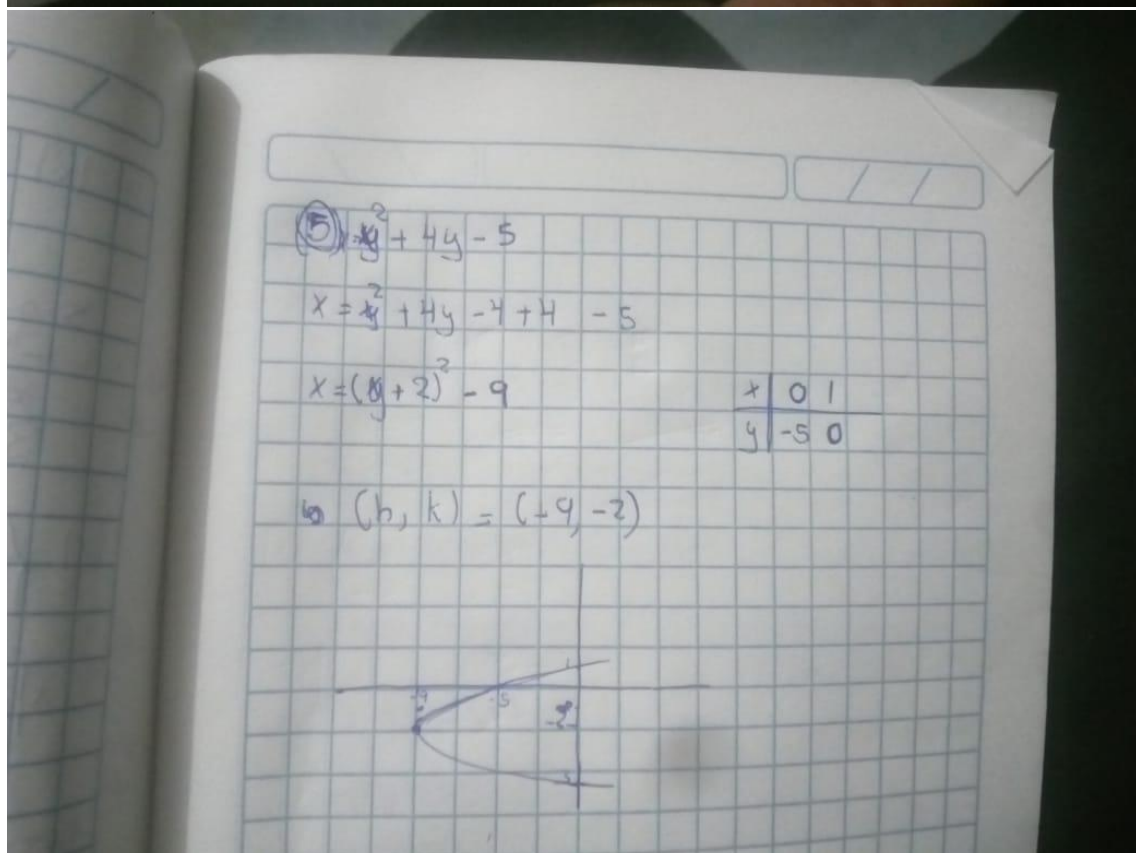 5) x=y² + 4y - 5
x = y² + 4y - 4 + 4 - 5
x = (y + 2)² - 9
x | 0 1
y | -5 0
(h, k) = (-9, -2)
-9 -5
-2